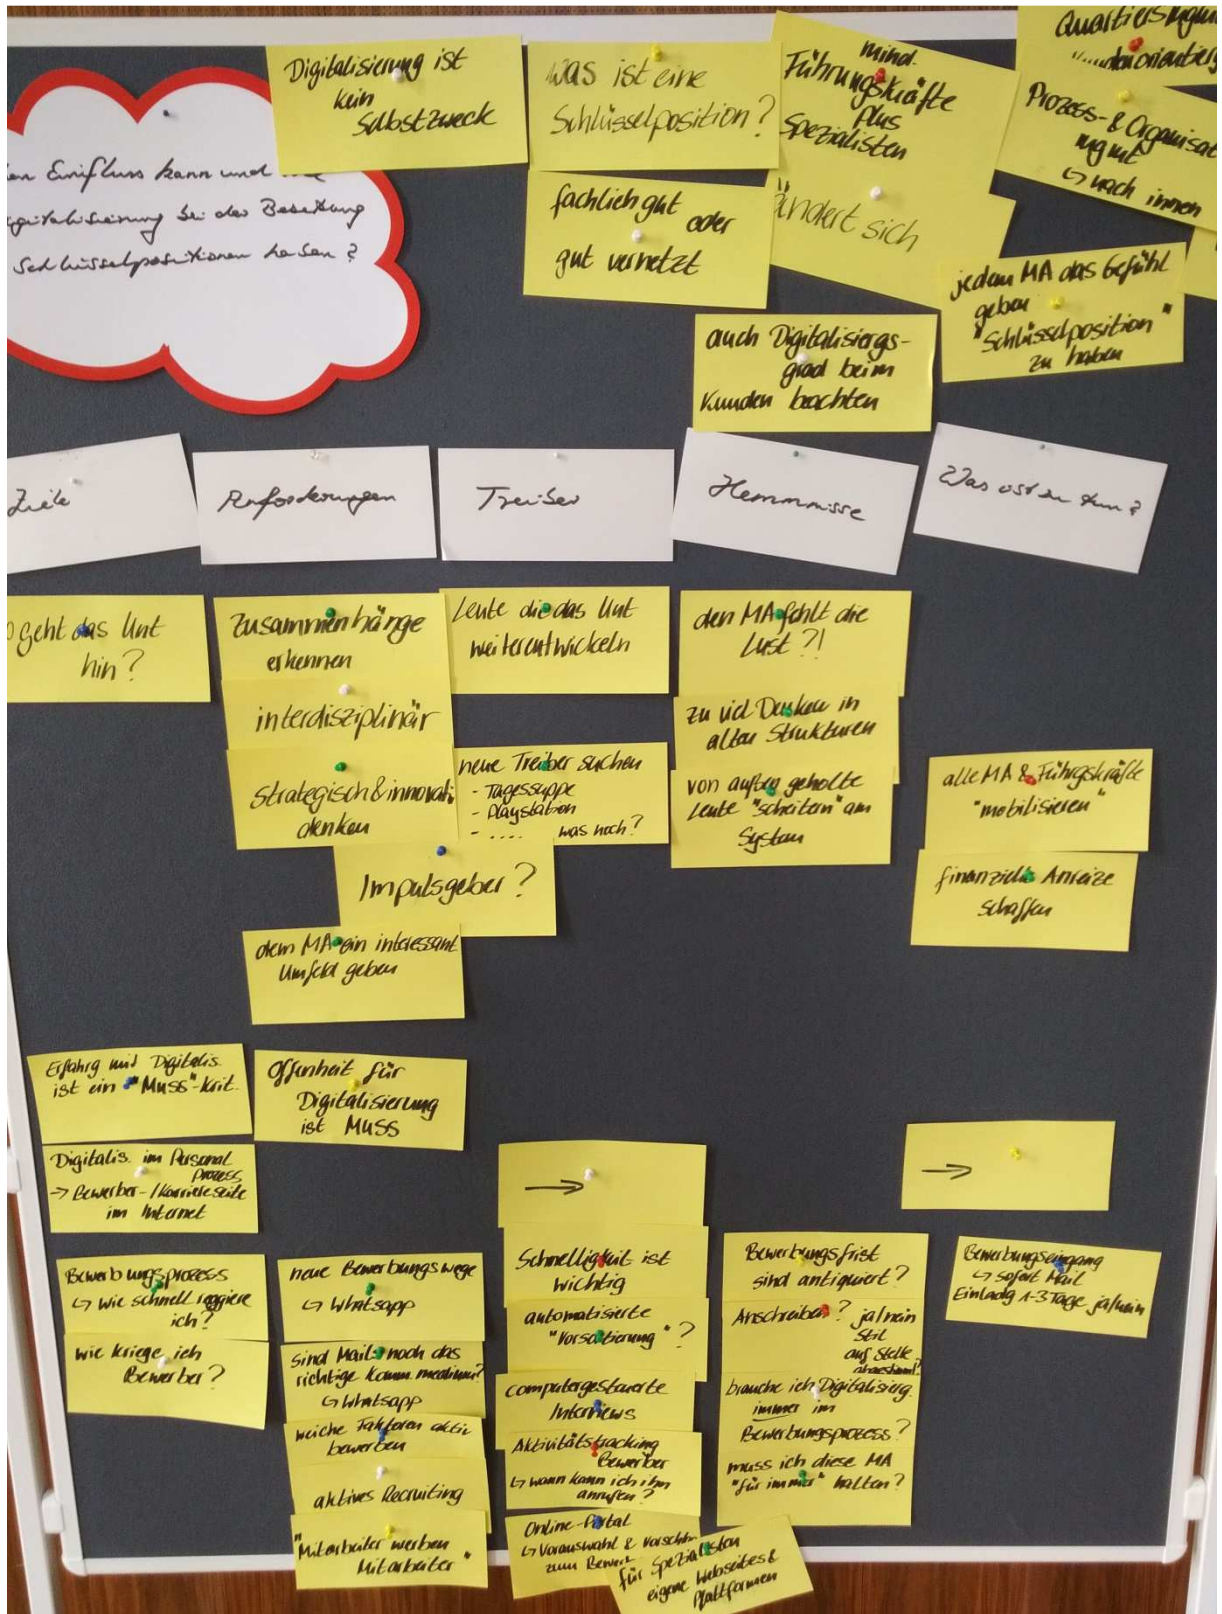 Digitalisierung ist
kein
Selbstzweck
Was ist eine
Schlüsselposition?
mind.
Führungskräfte
plus
Spezialisten
Quartiersmgm
Prozess- & Organisat
mgmt
↳ nach innen
en Einfluss kann und
Digitalisierung bei der Besetzung
Schlüsselpositionen haben?
fachlich gut
oder
gut vernetzt
Ändert sich
jedem MA das Gefühl
geben
"Schlüsselposition"
zu haben
auch Digitalisiergs-
grad beim
Kunden beachten
Ziele
Anforderungen
Treiber
Hemmnisse
Was ist zu tun?
geht das Unt
hin?
Zusammenhänge
erkennen
interdisziplinär
strategisch & innovati
denken
Impulsgeber?
dem MA ein interessant
Umfeld geben
Leute die das Unt
weiterentwickeln
neue Treiber suchen
- Tagessuppe
- Playstation
- ..... was noch?
den MA fehlt die
Lust?!
zu viel Denken in
alten Strukturen
von außen geholte
Leute "scheitern" am
System
alle MA & Führgskräfte
"mobilisieren"
finanzielle Anreize
schaffen
Erfahrg mit Digitalis.
ist ein "Muss"-krit.
Offenheit für
Digitalisierung
ist Muss
Digitalis. im Personal
prozess
→ Bewerber-/Karriereseite
im Internet
Bewerbungsprozess
↳ wie schnell reagiere
ich?
wie kriege ich
Bewerber?
neue Bewerbungswege
↳ Whatsapp
sind Mails noch das
richtige Komm.medium?
↳ Whatsapp
weiche Faktoren aktiv
bewerben
aktives Recruiting
"Mitarbeiter werben
Mitarbeiter"
→
Schnelligkeit ist
wichtig
automatisierte
"Vorsortierung"?
computergesteuerte
Interviews
Aktivitätstracking
Bewerber
↳ wann kann ich ihn
anrufen?
Online-Portal
↳ Vorauswahl & Vorschl
zum Bewer
für Spezialisten
eigene Webseites &
Plattformen
Bewerbungsfrist
sind antiquiert?
Anschreiben? ja/nein
Stil
auf Stelle
abgestimmt?
brauche ich Digitalisierg.
immer im
Bewerbungsprozess?
muss ich diese MA
"für immer" halten?
→
Bewerbungseingang
↳ sofort Mail
Einladg 1-3 Tage ja/nein